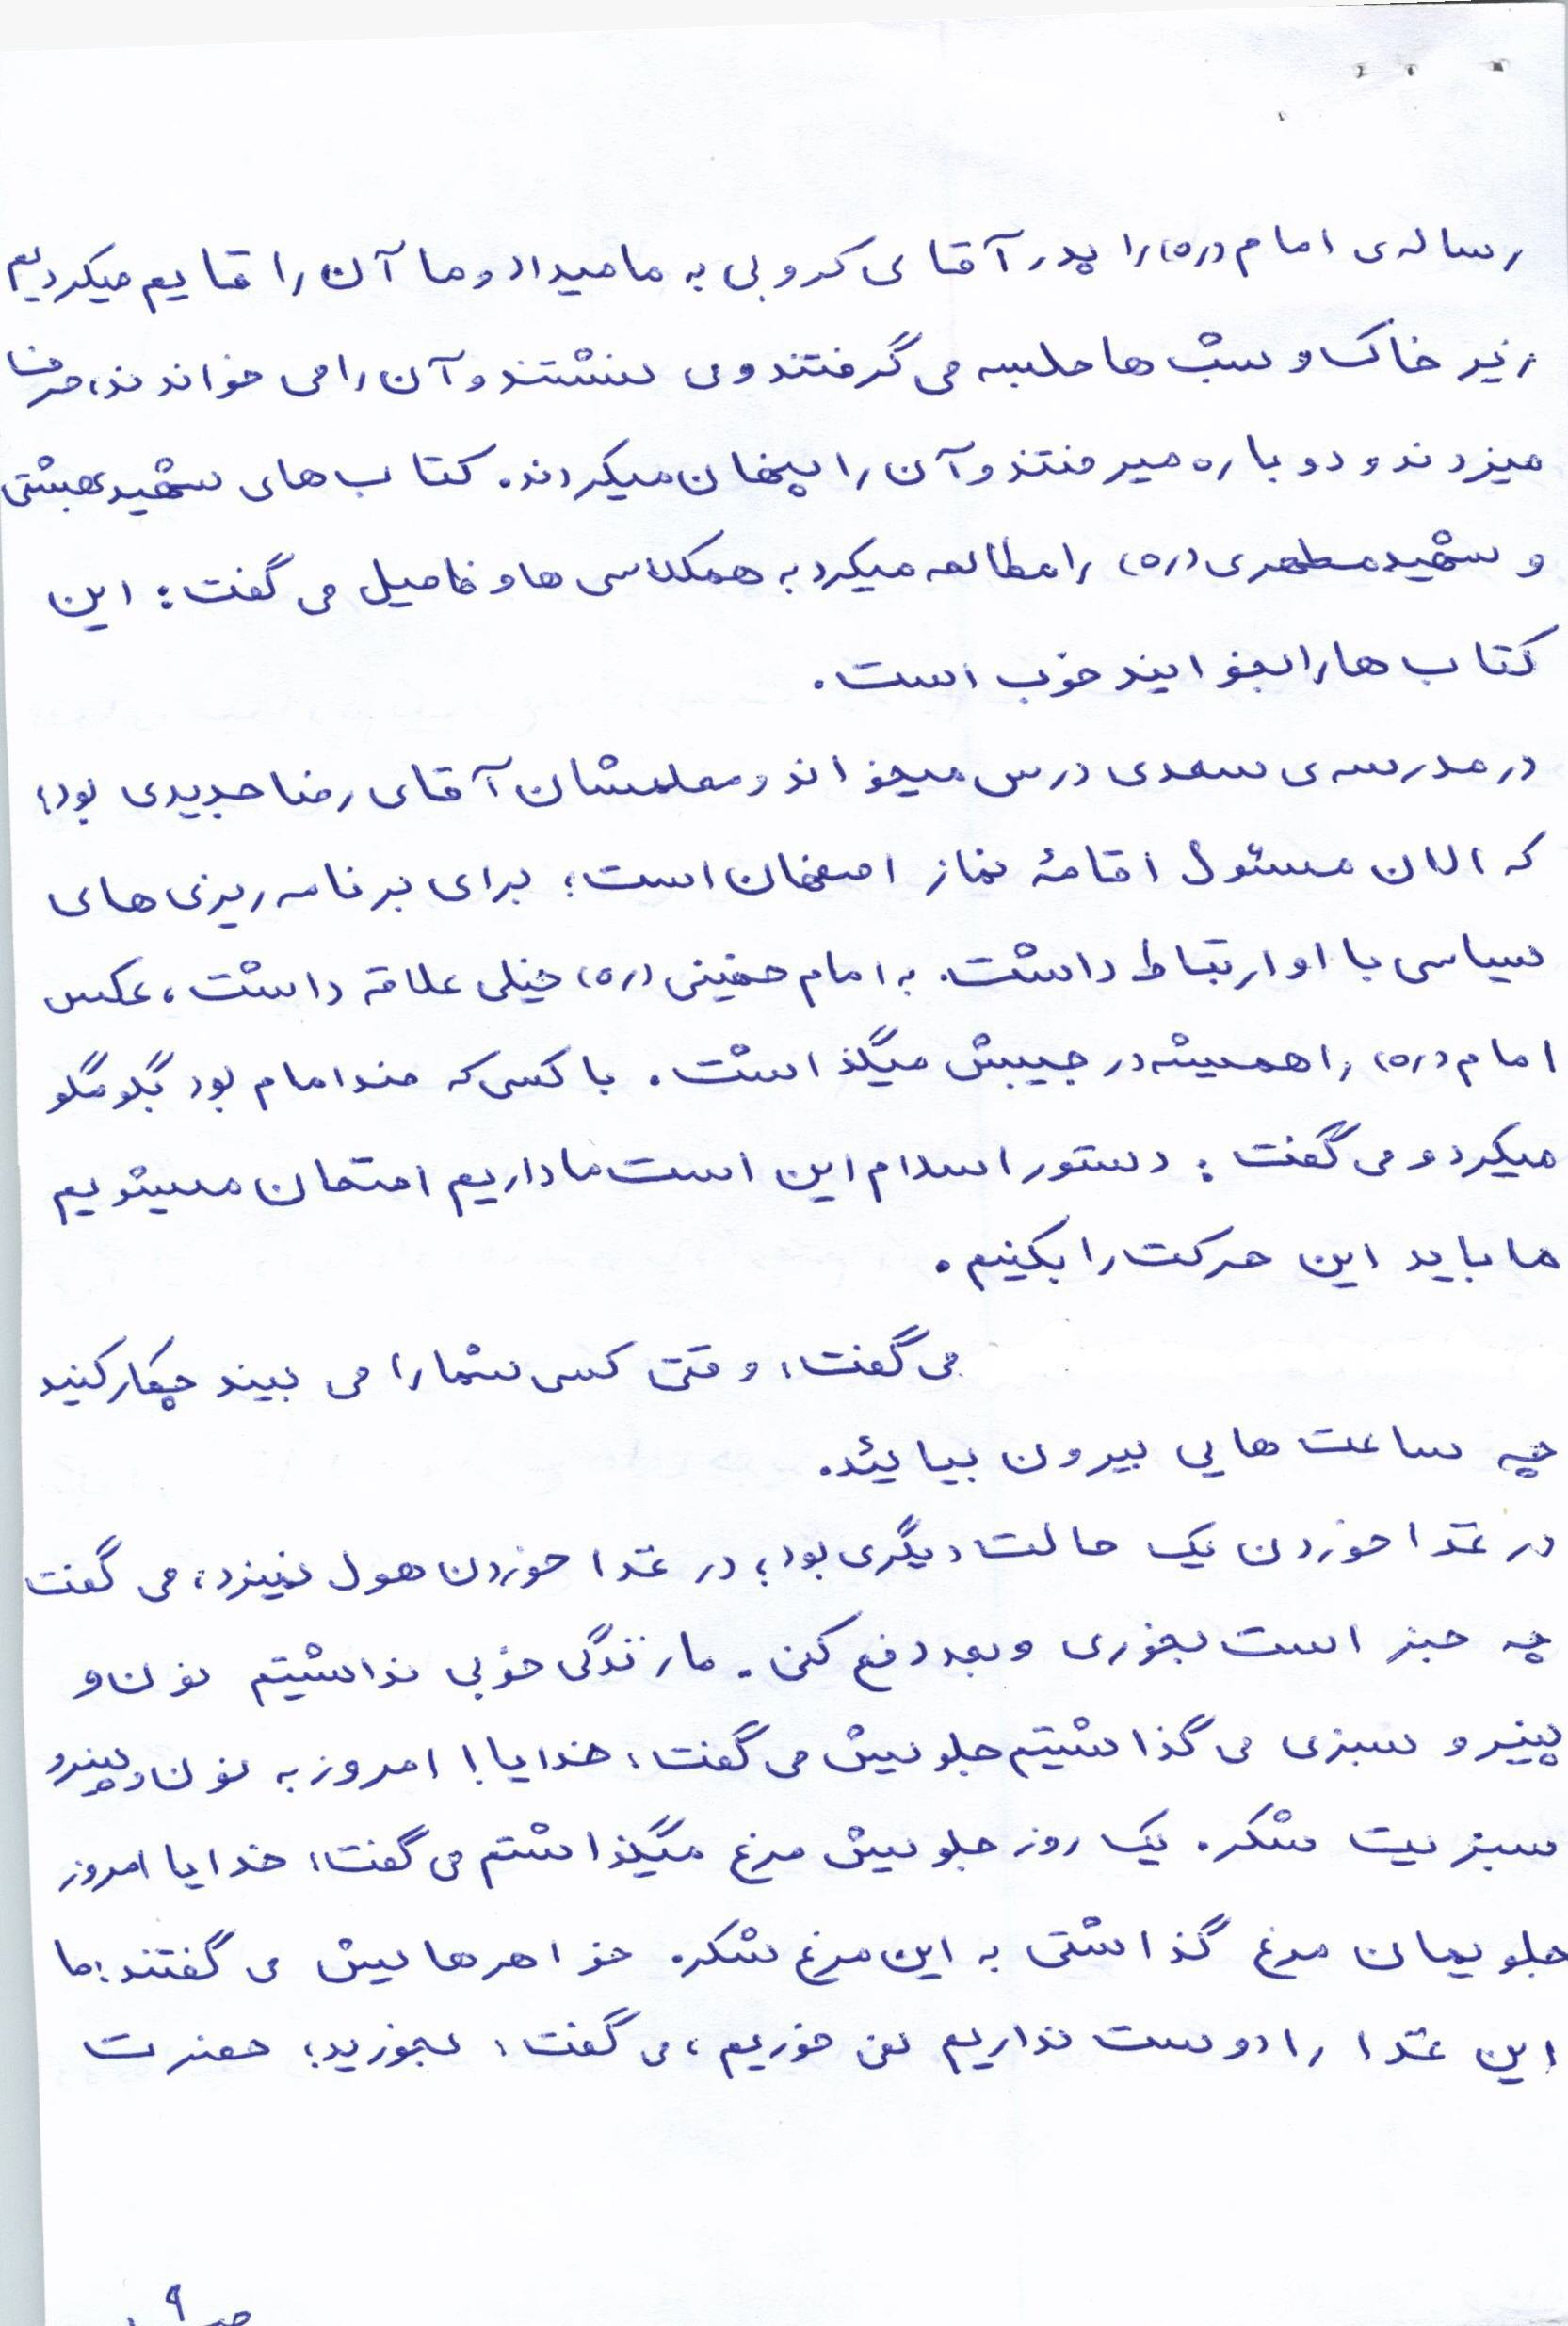 رساله‌ی امام (ره) را پدر آقای کروبی به ما میداد و ما آن را قایم میکردیم
زیر خاک و شب ها جلسه می گرفتند و می نشستند و آن را می خواندند، حرف
میزدند و دوباره میرفتند و آن را پنهان میکردند. کتاب های شهید بهشتی
و شهید مطهری (ره) را مطالعه میکرد به همکلاسی ها و فامیل می گفت: این
کتاب ها را بخوانید خوب است.
در مدرسه ی سعدی درس میخواند و معلمشان آقای رضا حدیدی بود؛
که الان مسئول اقامهٔ نماز اصفهان است؛ برای برنامه ریزی های
سیاسی با او ارتباط داشت. به امام خمینی (ره) خیلی علاقه داشت، عکس
امام (ره) را همیشه در جیبش میگذاشت. با کسی که ضد امام بود بگو مگو
میکرد و می گفت: دستور اسلام این است ما داریم امتحان میشویم
ما باید این حرکت را بکنیم.
می گفت: وقتی کسی شما را می بیند چکار کنید
چه ساعت هایی بیرون بیایئد.
در غذا خوردن یک حالت دیگری بود؛ در غذا خوردن هول نمیزد، می گفت
چه خبر است بخوری و بعد دفع کنی. ما زندگی خوبی نداشتیم نون و
پنیر و سبزی می گذاشتیم جلویش می گفت: خدایا! امروز به نون و پنیر و
سبزیت شکر. یک روز جلویش مرغ میگذاشتم می گفت: خدایا امروز
جلویمان مرغ گذاشتی به این مرغ شکر. خواهرهایش می گفتند: ما
این غذا را دوست نداریم نمی خوریم، می گفت: بخورید؛ حضرت
ص ۹